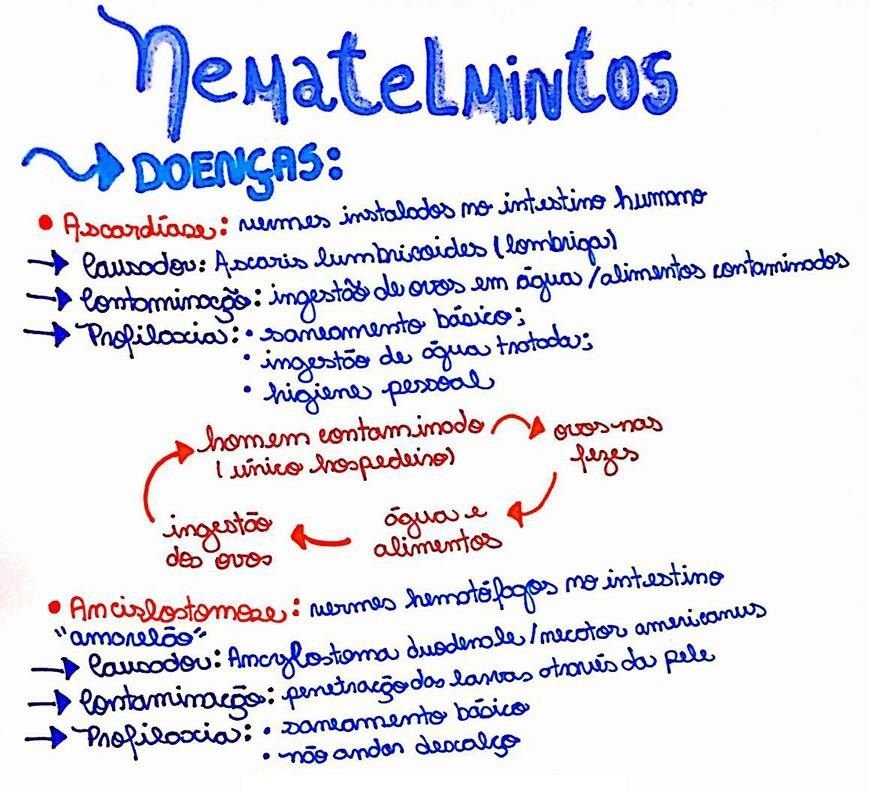 Nematelmintos
DOENÇAS:
• Ascardíase: vermes instalados no intestino humano
→ Causador: Ascaris lumbricoides (lombriga)
→ Contaminação: ingestão de ovos em água/alimentos contaminados
→ Profilaxia: • saneamento básico;
• ingestão de água tratada;
• higiene pessoal
homem contaminado
(único hospedeiro)
ovos nas
fezes
água e
alimentos
ingestão
dos ovos
• Ancilostomose: vermes hematófagos no intestino
"amarelão"
→ Causador: Ancylostoma duodenale/necator americanus
→ Contaminação: penetração das larvas através da pele
→ Profilaxia: • saneamento básico
• não andar descalço